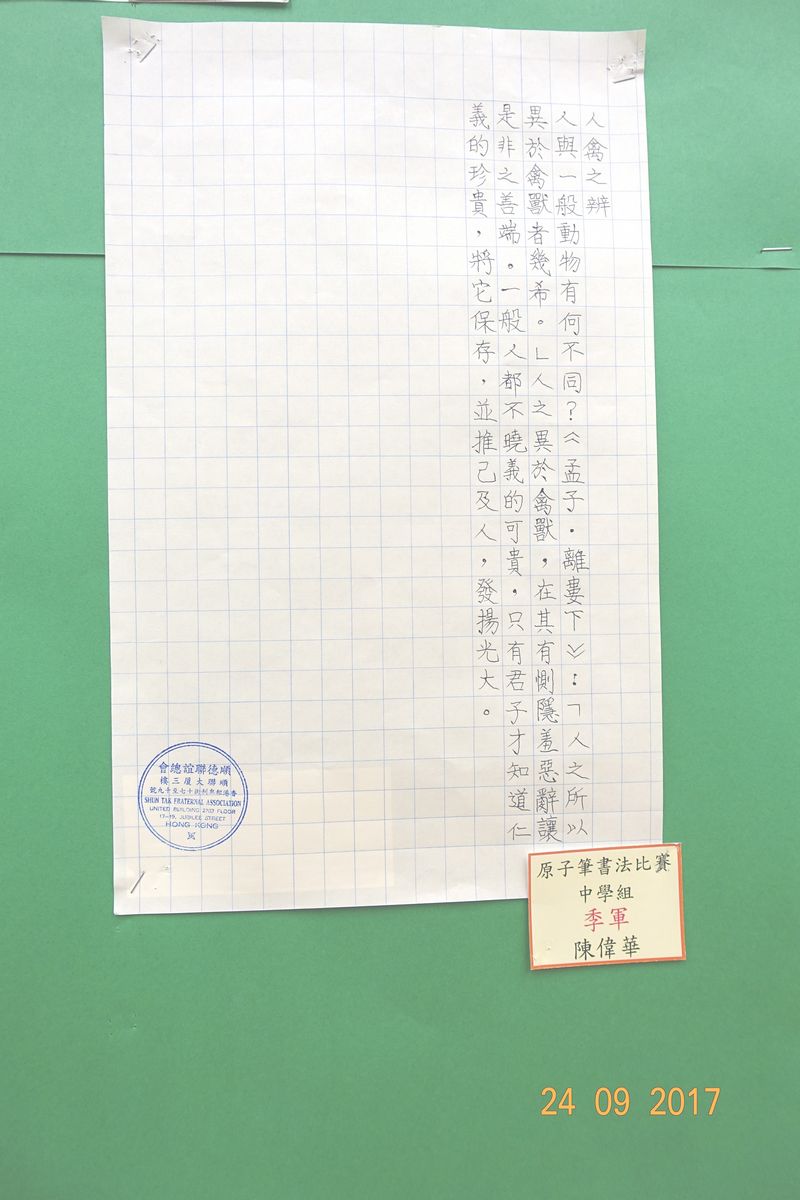 人禽之辨
人與一般動物有何不同？《孟子．離婁下》：「人之所以
異於禽獸者幾希。」人之異於禽獸，在其有惻隱羞惡辭讓
是非之善端。一般人都不曉義的可貴，只有君子才知道仁
義的珍貴，將它保存，並推己及人，發揚光大。
順德聯誼總會
順聯大廈三樓
香港租庇利街十七至十九號
SHUN TAK FRATERNAL ASSOCIATION
UNITED BUILDING 2ND FLOOR
17-19, JUBILEE STREET
HONG KONG
原子筆書法比賽
中學組
季軍
陳偉華
24 09 2017